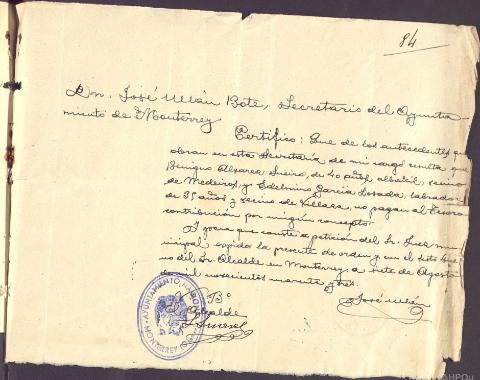 84
Don José Ullán Bote, Secretario del Ayunta-
miento de Monterrey
Certifico: Que de los antecedentes que
obran en esta Secretaría de mi cargo resulta que
Benigno Alvarez de 40 años, albañil, vecino
de Medeiros, y Edelmiro García Losada, labrador
de 35 años y vecino de Villaza, no pagan al Tesoro
contribución por ningún concepto.
Y para que conste a petición del Sr. Juez mu-
nicipal expido la presente de orden y con el visto bue-
no del Sr. Alcalde en Monterrey a siete de Agosto
de mil novecientos
Vº Bº
El Alcalde
José Ullán
AYUNTAMIENTO NACIONAL
MONTERREY